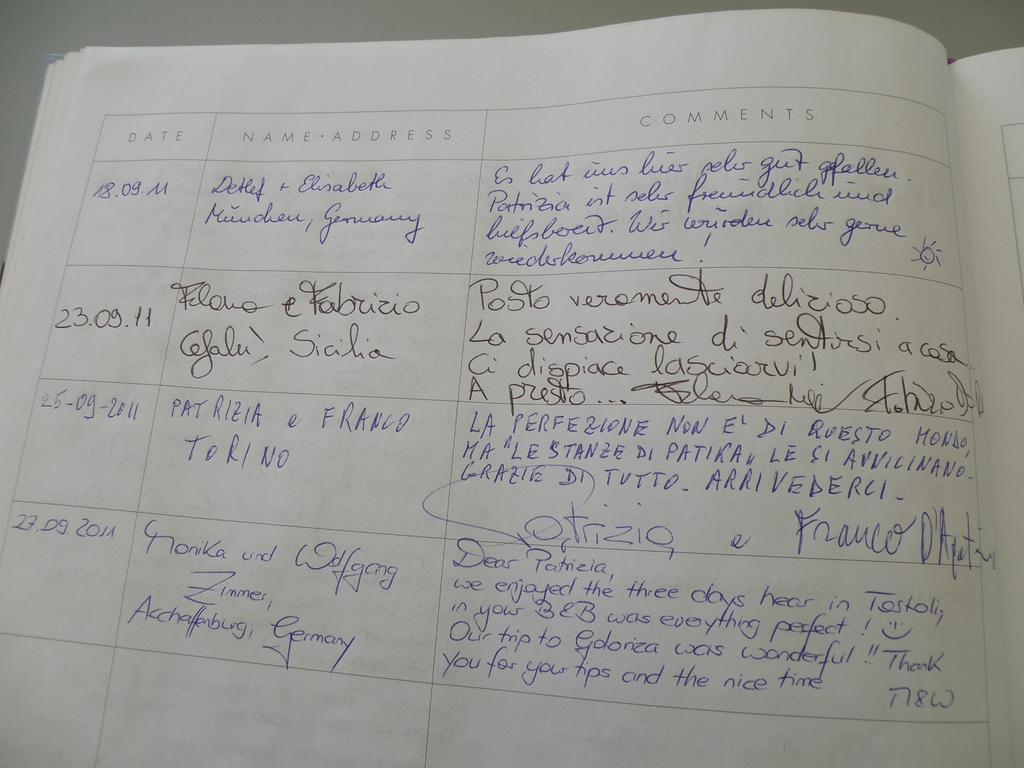 DATE NAME·ADDRESS COMMENTS
18.09.11
Detlef + Elisabeth
München, Germany
Es hat uns hier sehr gut gefallen.
Patrizia ist sehr freundlich und
hilfsbereit. Wir würden sehr gerne
wiederkommen!
23.09.11
Elena e Fabrizio
Cefalù, Sicilia
Posto veramente delizioso.
La sensazione di sentirsi a casa...
Ci dispiace lasciarvi!
A presto...
25-09-2011
PATRIZIA e FRANCO
TORINO
LA PERFEZIONE NON E' DI QUESTO MONDO,
MA "LE STANZE DI PATIRA" LE SI AVVICINANO.
GRAZIE DI TUTTO. ARRIVEDERCI.
Patrizia e Franco
27.09.2011
Monika und Wolfgang
Zimmer,
Aschaffenburg, Germany
Dear Patrizia,
we enjoyed the three days hear in Tortoli;
in your B&B was everything perfect!
Our trip to Goloriza was wonderful!! Thank
you for your tips and the nice time
M&W